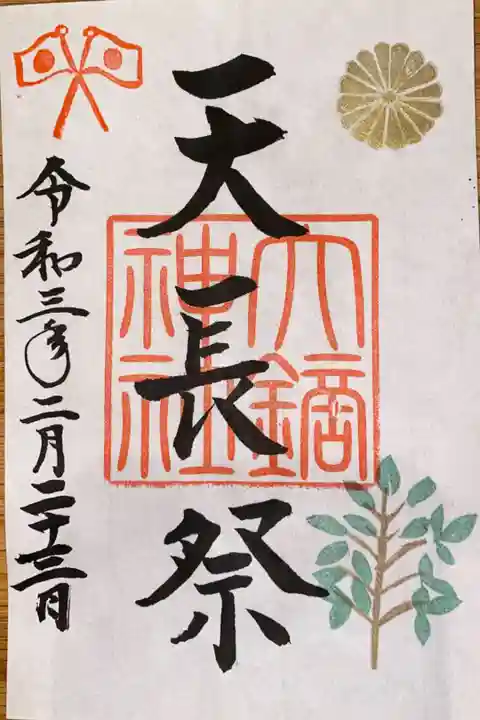 天長祭
大鏑神社
令和三年二月二十三日